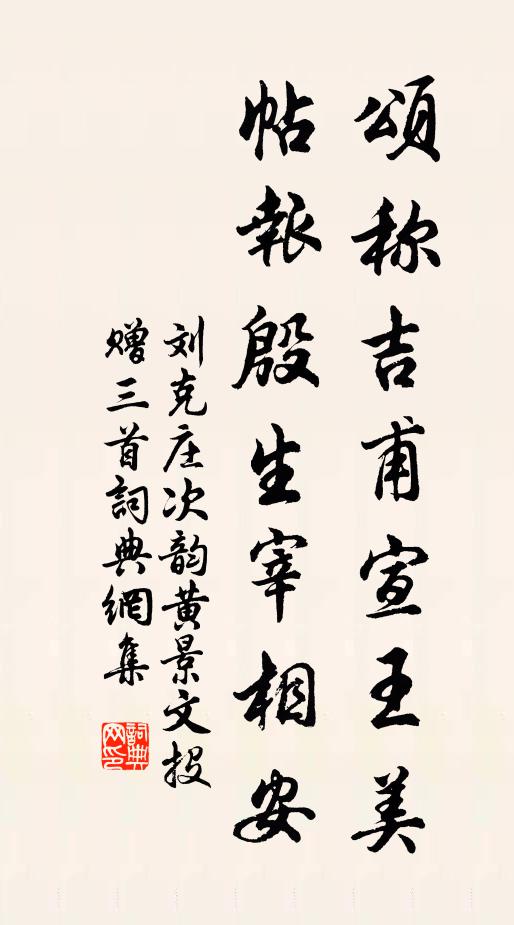 頌称吉甫宣王美
帖報殷生宰相安
刘克庄次韵黄景文投
赠三首詞典網集
詞典網印